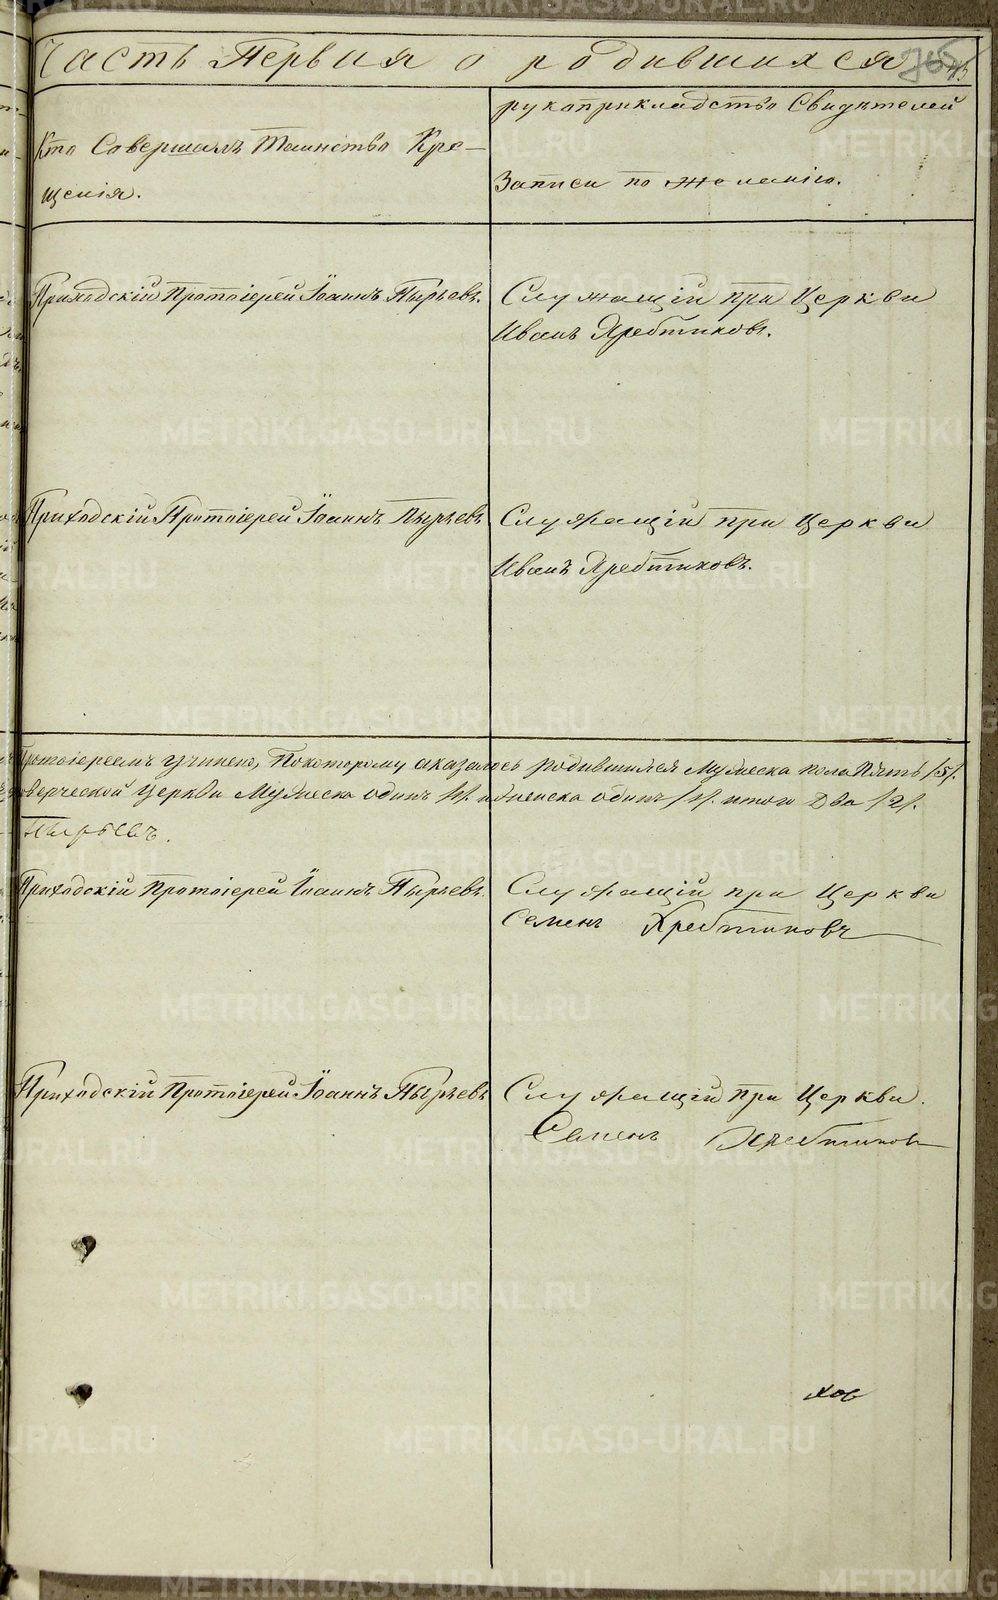 Часть Первая о родившихся
Кто Совершалъ Таинство Кре-
щенія.
рукоприкладство Свидѣтелей
Записи по желанію.
Приходскій Протоіерей Іоаннъ Пырьевъ.
Служащій при Церкви
Иванъ Хребтиковъ.
Приходскій Протоіерей Іоаннъ Пырьевъ
Служащій при Церкви
Иванъ Хребтиковъ.
Протоіереемъ учинено, По которому оказалось родившихся Мужеска пола Пять /5/.
Церкви Мужеска одинъ /1/. и женска одинъ /1/. итого Два /2/.
Пырьевъ.
Приходскій Протоіерей Іоаннъ Пырьевъ.
Служащій при Церкви
Семенъ Хребтиковъ
Приходскій Протоіерей Іоаннъ Пырьевъ
Служащій при Церкви.
Семенъ Хребтиковъ
ков
METRIKI.GASO-URAL.RU